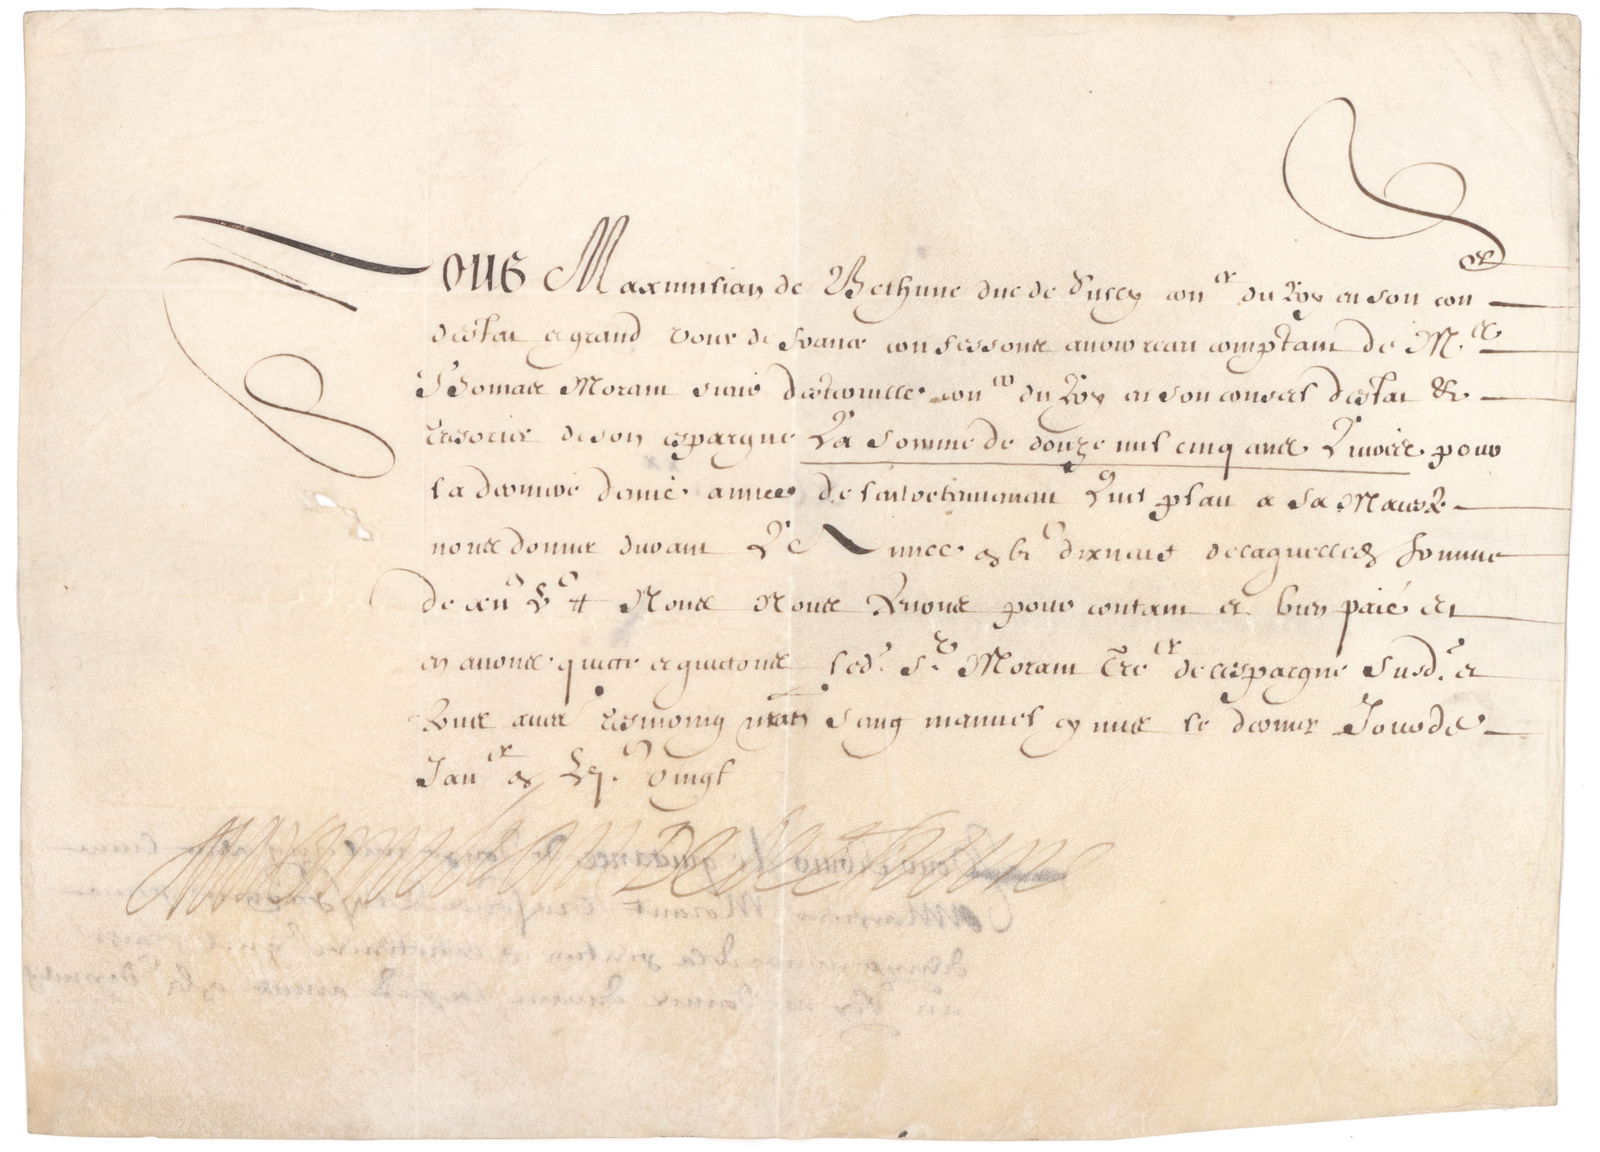 Nous Maximilian de Bethune duc de Sully con.er du Roy en son con
destat et grand voier de France confessons avoir receu comptant de M.e
Thomas Morant sieur desterville con.er du Roy en son conseil destat &
tresorier de son espargne La somme de douze mil cinq cens Livres pour
la derniere demie annee de lentretenement quil plait a sa Maiesté
nous donner durant L'annee vjc dixneuf de laquelle somme
de xijm vc tt Nous Nous tenons pour contant et bien paié et
en avons quitté et quittons led. Sr. Morant Tre.er de lespargne susd. et
tous autres tesmoing nostre seing manuel cy mis le dernier Jour de
Jan.er vjc vingt
Maximilian De Bethune